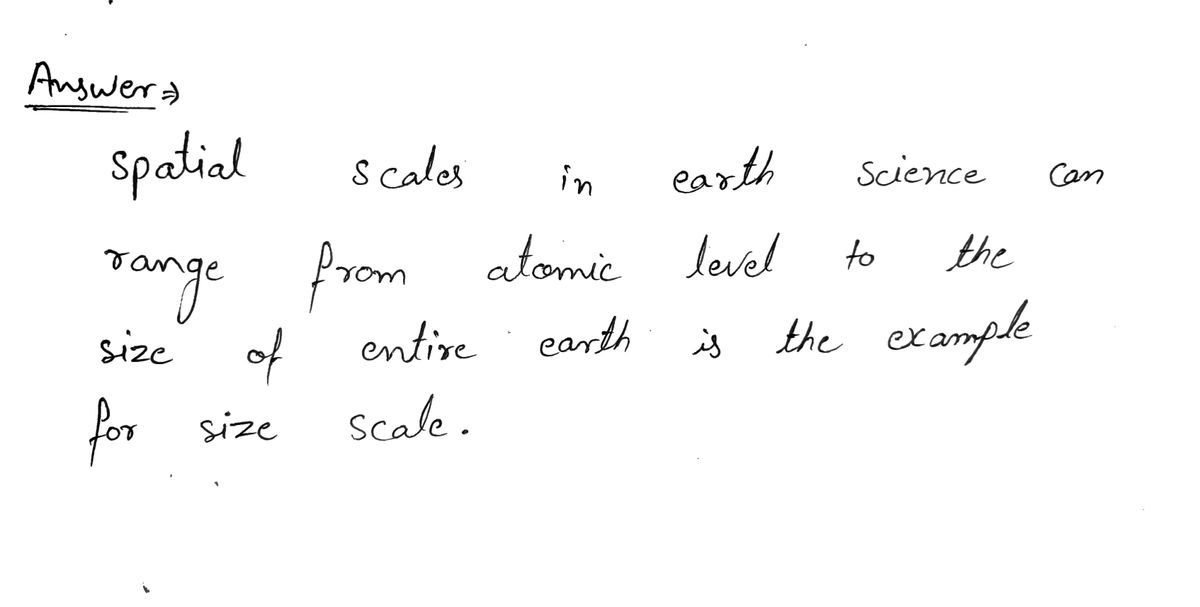 Answer ⇒
spatial scales in earth science can
range from atomic level to the
size of entire earth is the example
for size scale.